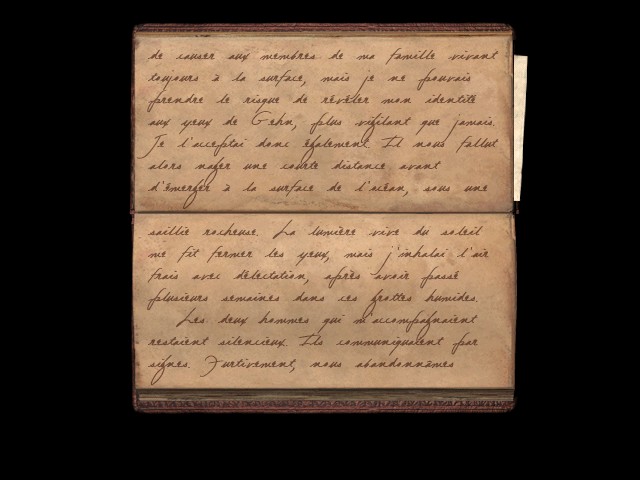 de causer aux membres de ma famille vivant
toujours à la surface, mais je ne pouvais
prendre le risque de révéler mon identité
aux yeux de Gehn, plus vigilant que jamais.
Je l'acceptai donc également. Il nous fallut
alors nager une courte distance avant
d'émerger à la surface de l'océan, sous une
saillie rocheuse. La lumière vive du soleil
me fit fermer les yeux, mais j'inhalai l'air
frais avec délectation, après avoir passé
plusieurs semaines dans ces grottes humides.
Les deux hommes qui m'accompagnaient
restaient silencieux. Ils communiquaient par
signes. Furtivement, nous abandonnâmes